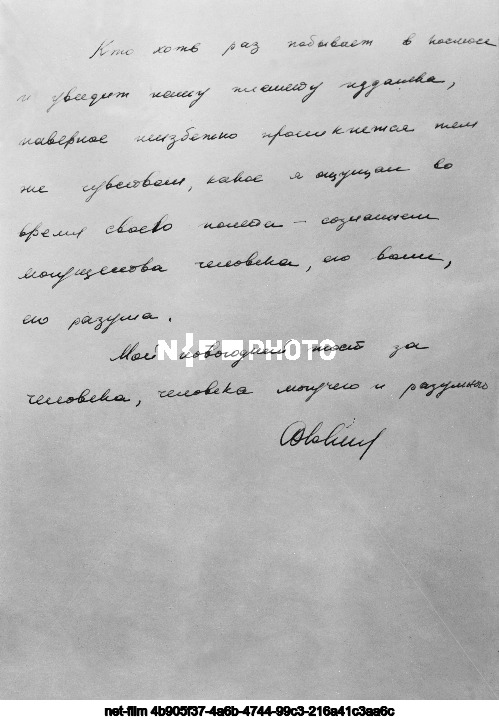 Кто хоть раз побывает в космосе
и увидит нашу планету издалека,
наверное неизбежно проникнется тем
же чувством, какое я ощущал во
время своего полета – сознанием
могущества человека, его воли,
его разума.
Мой новогодний тост за
человека, человека могучего и разумного
NET-FILM PHOTO
net-film 4b905f37-4a6b-4744-99c3-216a41c3aa6c